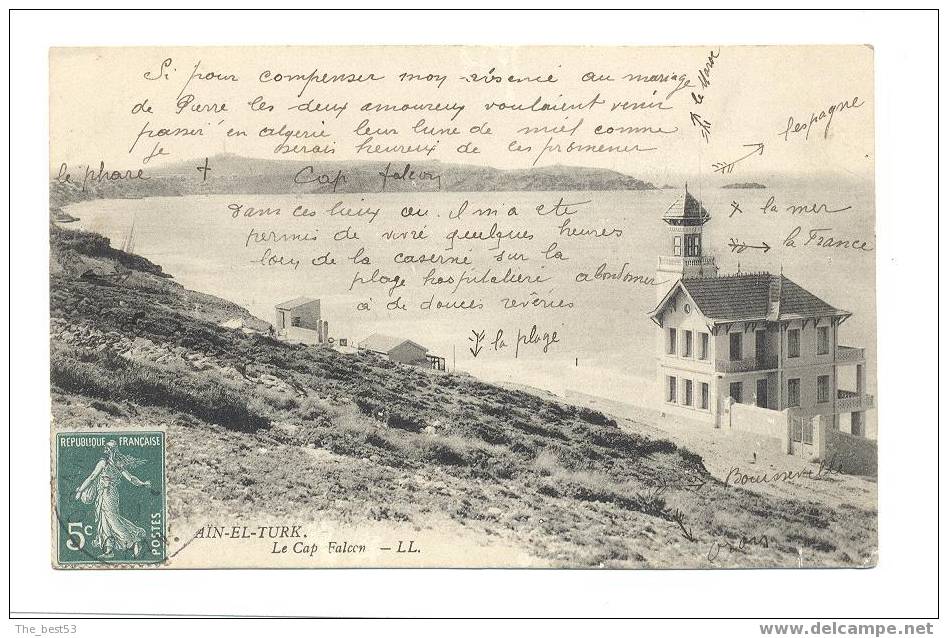 Si pour compenser mon absence au mariage
de Pierre les deux amoureux voulaient venir
passer en algérie leur lune de miel comme
je serais heureux de les promener
le Maroc
l'espagne
le phare + Cap falcon
la mer
la France
Dans ces lieux ou il m'a été
permis de vivre quelques heures
loin de la caserne sur la
plage hospitalière abandonner
à de douces rêveries
la plage
Bouisseville
Oran
REPUBLIQUE FRANÇAISE
5c
POSTES
AÏN-EL-TURK.
Le Cap Falcon — LL.
The_best53
www.delcampe.net